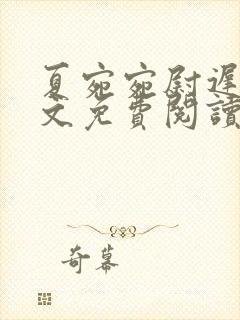 夏宛宛尉遲
文免費閱讀
奇幕